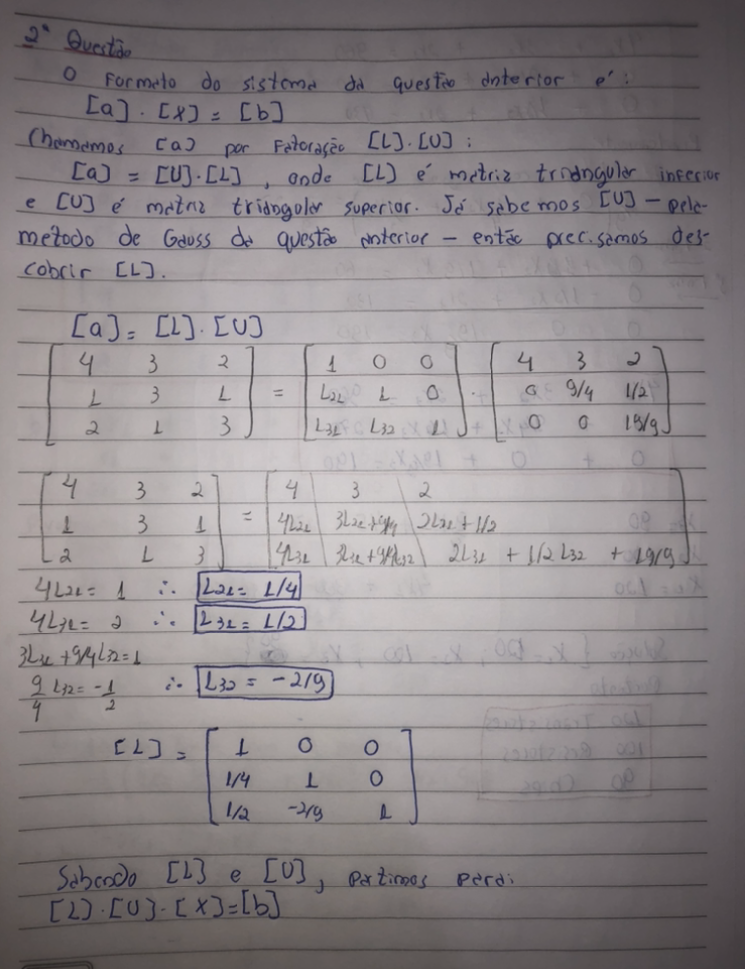 2ª Questão
O Formato do sistema da questão anterior é:
[a] . [X] = [b]
Chamamos [a] por Fatoração [L].[U]:
[a] = [U].[L], onde [L] é matriz triangular inferior
e [U] é matriz triangular superior. Já sabemos [U] - pelo
método de Gauss da questão anterior - então precisamos des-
cobrir [L].
[a] = [L].[U]
4 3 2 1 0 0 4 3 2
1 3 1 = L21 1 0 . 0 9/4 1/2
2 1 3 L31 L32 1 0 0 19/9
4 3 2 4 3 2
1 3 1 = 4L21 3L21+9/4 2L21+1/2
2 1 3 4L31 3L31+9/4L32 2L31 + 1/2 L32 + 19/9
4L21 = 1 ∴ L21 = 1/4
4L31 = 2 ∴ L31 = 1/2
3L31 + 9/4 L32 = 1
9/4 L32 = -1/2 ∴ L32 = -2/9
[L] = 1 0 0
1/4 1 0
1/2 -2/9 1
Sabendo [L] e [U], partimos para:
[L].[U].[X]=[b]